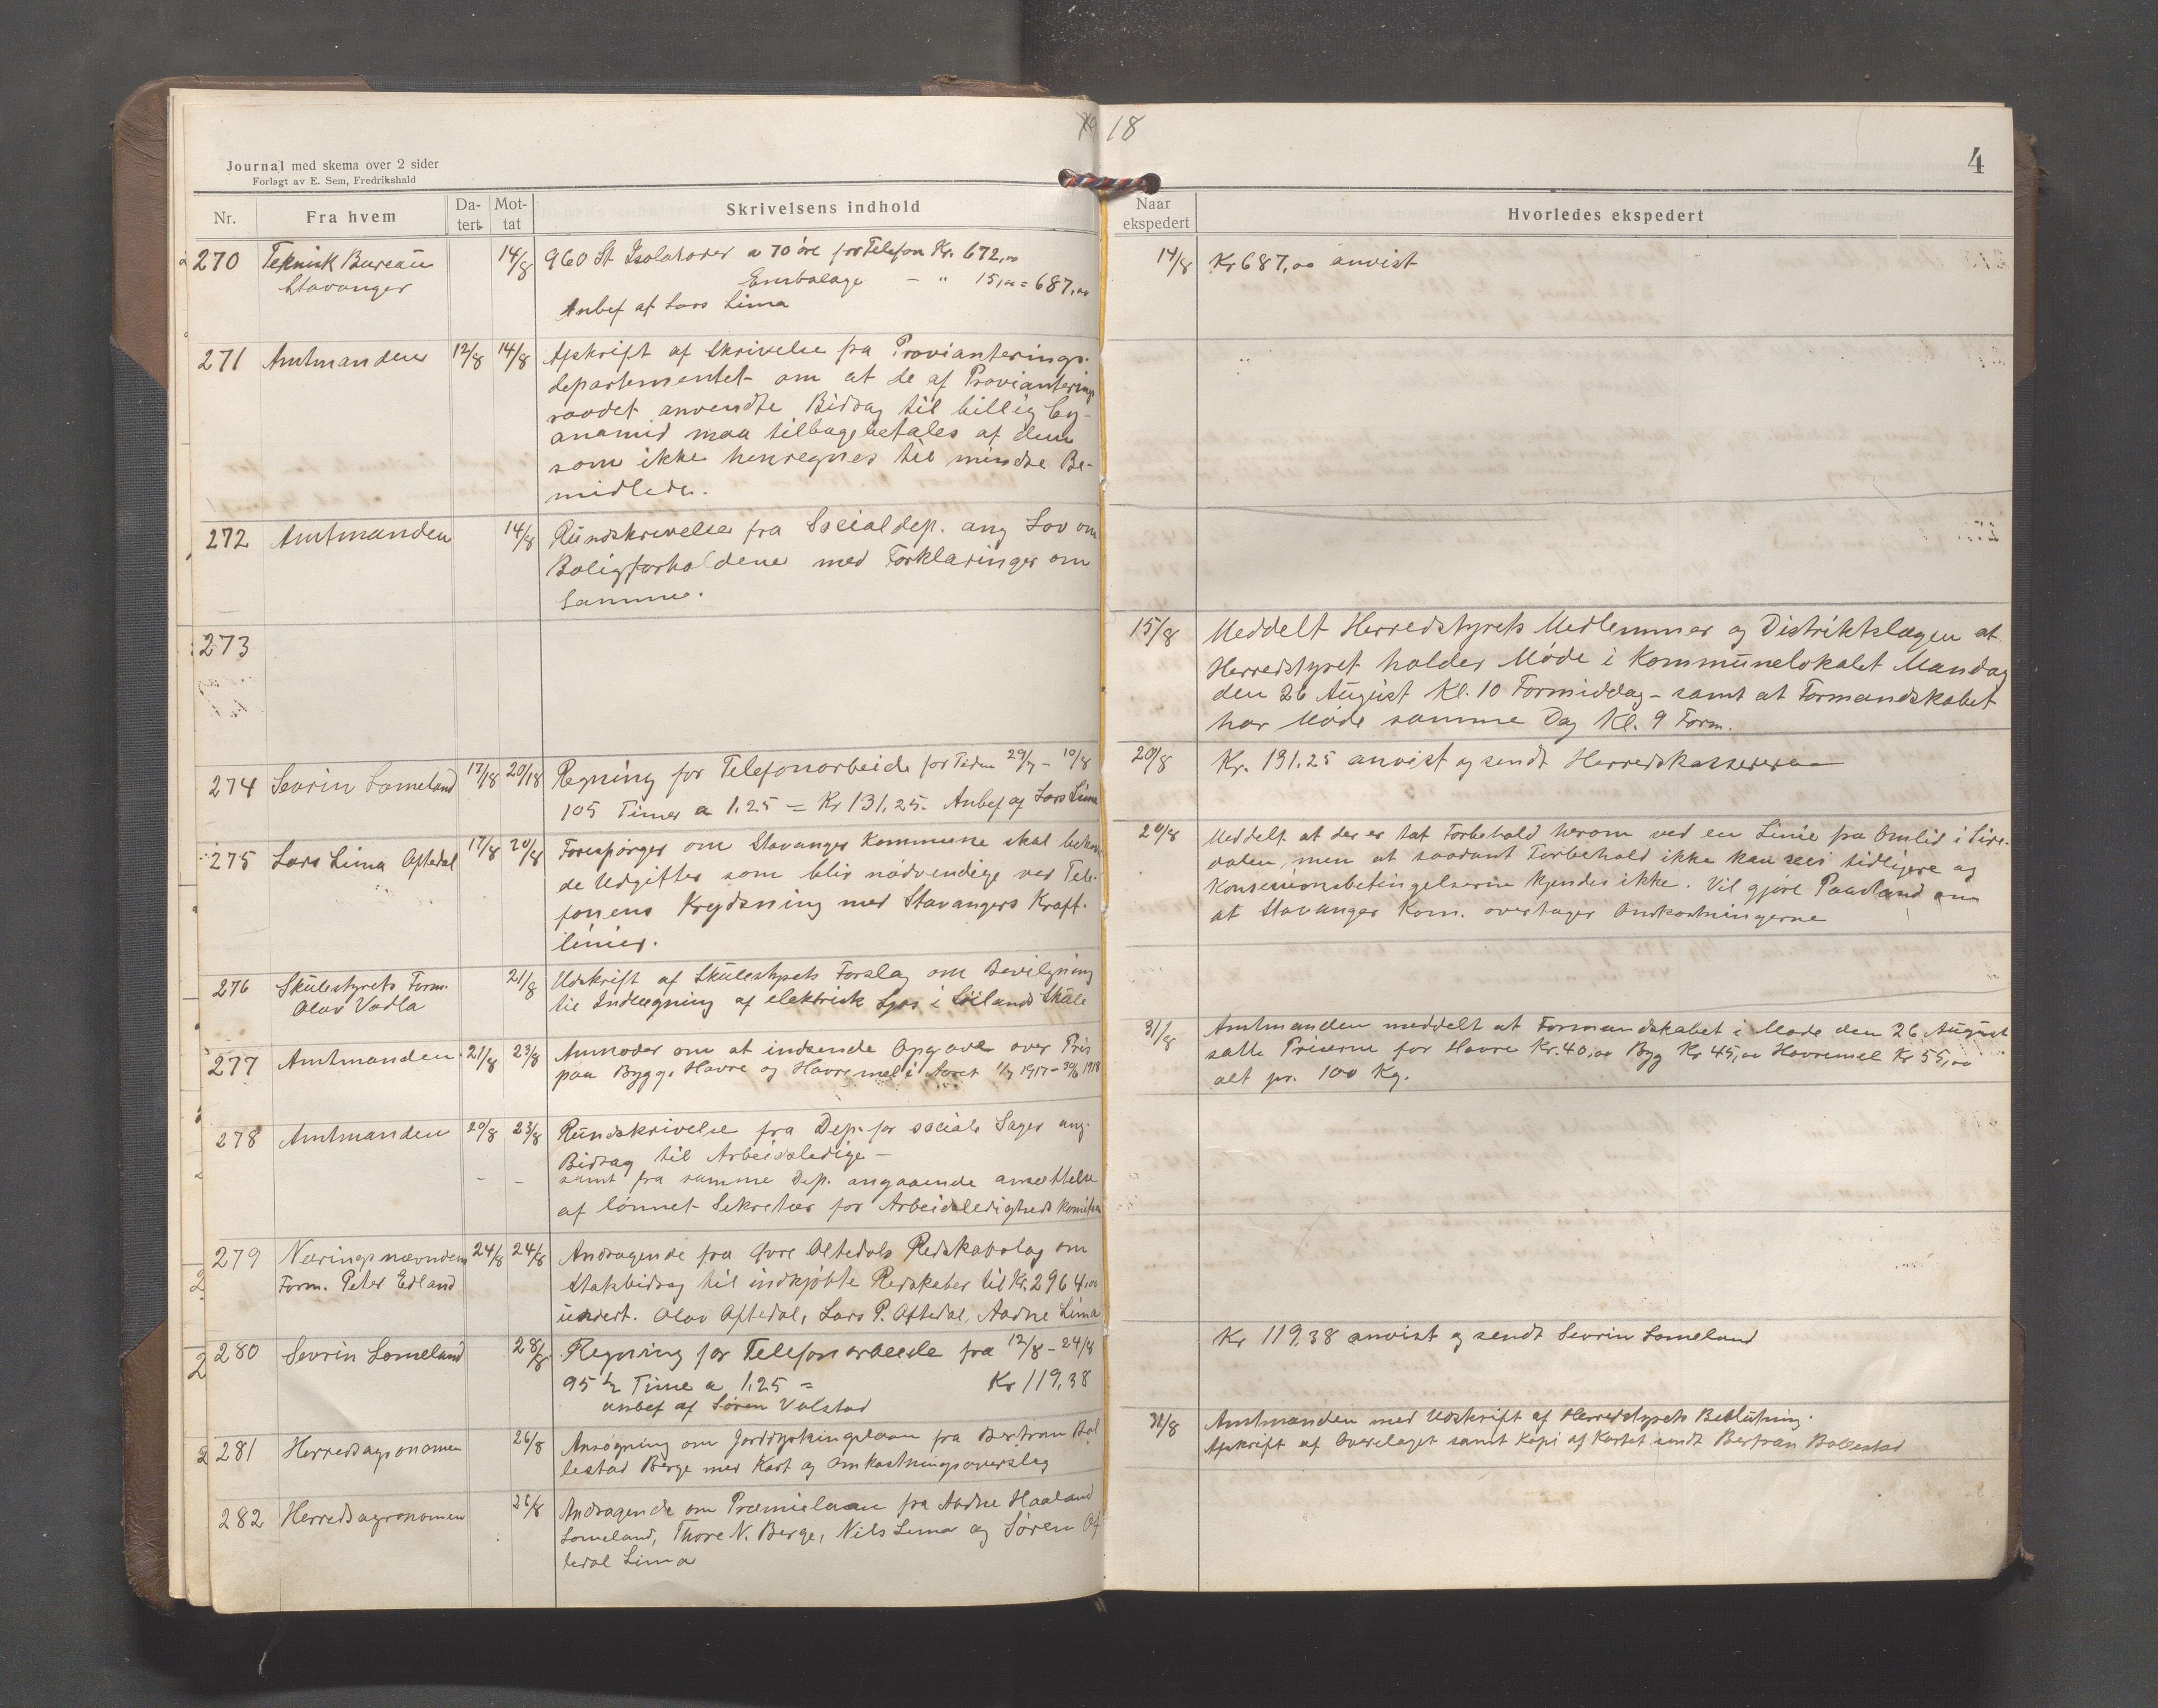 19 18
Journal med skema over 2 sider
Forlagt av E. Sem, Fredrikshald
4
Nr. Fra hvem Datert Mottat Skrivelsens indhold Naar ekspedert Hvorledes ekspedert
270 Teknisk Bureau Stavanger 14/8
960 St Isolatorer a 70 öre for Telefon Kr. 672,00
Embalage - " 15,00 = 687,00
Anbef af Lars Lima
14/8 Kr 687,00 anvist
271 Amtmanden 12/8 14/8
Afskrift af Skrivelse fra Provianterings-
departementet om at de af Provianterings
raadet anvendte Bidrag til billig Cy-
anamid maa tilbagebetales af dem
som ikke henregnes til mindre Be-
midlede.
272 Amtmanden 14/8
Rundskrivelse fra Socialdep. ang Lov om
Boligforholdene med Forklaringer om
Samme.
273
15/8 Meddelt Herredstyrets Medlemmer og Distriktslægen at
Herredstyret holder Möde i Kommunelokalet Mandag
den 26 August Kl. 10 Formiddag - samt at Formandskabet
har Möde samme Dag Kl. 9 Form.
274 Sevrin Lomeland 17/18 20/18
Regning for Telefonarbeide for Tiden 29/7 - 10/8
105 Timer a 1.25 = Kr 131,25. Anbef af Lars Lima
20/8 Kr. 131.25 anvist og sendt Herredskassereren
275 Lars Lima Oftedal 17/8 20/8
Forespörger om Stavanger Kommune skal bekos-
de Udgifter som blir nödvendige ved Tele-
fonens Krydsning med Stavangers Kraft-
linier.
20/8 Meddelt at der er tat Forbehold herom ved en Linie fra Omlid i Sire-
dalen, men at saadant Forbehold ikke kan sees tidligere og
Konsessionsbetingelserne kjendes ikke. Vil gjöre Paastand om
at Stavanger Kom. overtager Omkostningerne
276 Skulestyrets Form. Olav Vadla 21/8
Udskrift af Skulestyrets Forslag om Bevilgning
til Indlægning af elektrisk Lys i Söilands Skule
277 Amtmanden 21/8 23/8
Anmoder om at indsende Opgave over Pris
paa Bygg, Havre og Havremel i Aaret 1/7 1917 - 30/6 1918
31/8 Amtmanden meddelt at Formandskabet i Möde den 26 August
satte Priserne for Havre Kr. 40,00 Byg Kr 45,00 Havremel Kr 55,00
alt pr. 100 Kg.
278 Amtmanden 20/8 23/8
Rundskrivelse fra Dep. for sociale Sager ang.
Bidrag til Arbeidsledige -
- - samt fra samme Dep. angaaende ansættelse
af lönnet Sekretær for Arbeidsledigheds komiteen
279 Næringsnævndens Form. Peter Edland 24/8 24/8
Andragende fra Övre Oltedals Redskabslag om
Statsbidrag til indkjöbte Redskaber til Kr. 2964,00
undert. Olav Oftedal, Lars P. Oftedal, Aadne Lima
280 Sevrin Lomeland 28/8
Regning for Telefonarbeide fra 12/8 - 24/8
95 1/2 Time a 1.25 = Kr 119,38
anbef af Sören Valstad
Kr 119.38 anvist og sendt Sevrin Lomeland
281 Herredsagronomen 26/8
Ansögning om Jorddyrkingslaan fra Bertran Bol
lestad Berge med Kart og Omkostningsoverslag
31/8 Amtmanden med Udskrift af Herredstyrets Beslutning.
Afskrift af Overslaget samt Kopi af Kartet sendt Bertran Bollestad
282 Herredsagronomen 26/8
Andragende om Præmielaan fra Aadne Haaland
Lomeland, Thore N. Berge, Nils Lima og Sören Of
tedal Lima